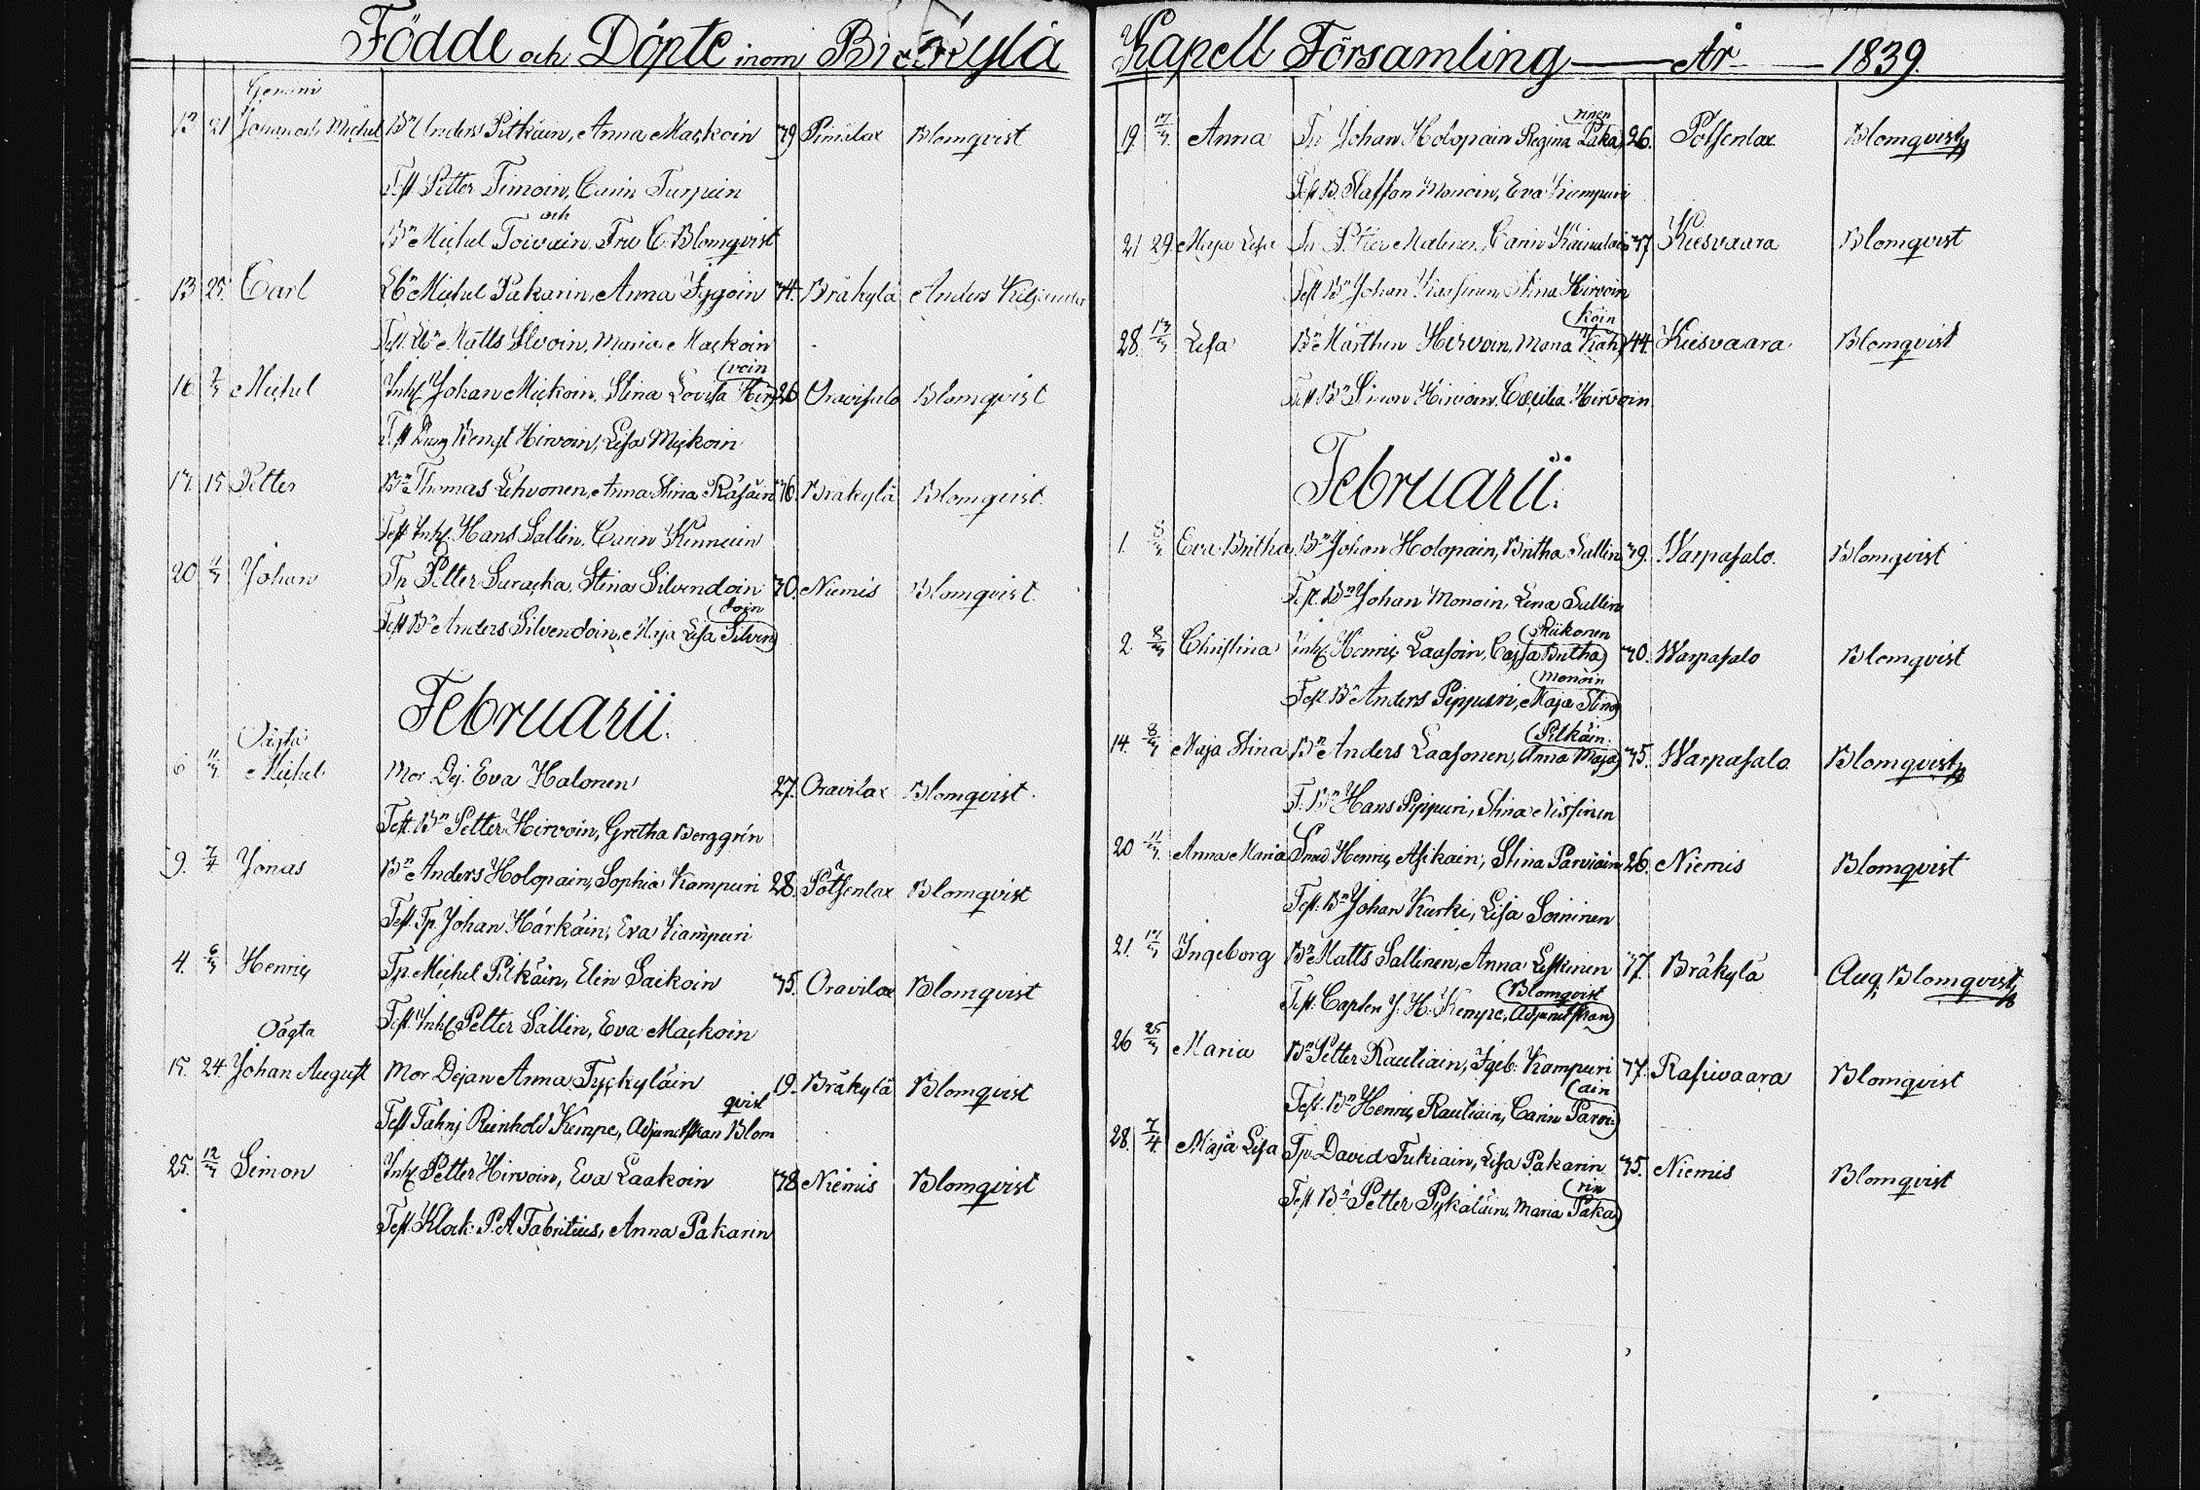 Födde och Döpte inom Bräkylä
Gemini
13 21 Johan och Michel Bn Anders Pitkäin, Anna Maçkoin 39 Pimiilax Blomqvist
Test Petter Timoin, Carin Turpein
Bn Michel Toivain, och Fru C. Blomqvist
13 25. Carl Lbn Michel Pakarin, Anna Tygoin 34. Bräkylä Anders Kiljander
Test. Lbn Matts Ilvoin, Maria Maçkoin
16 Michel Inhs Johan Miçkoin, Stina Lovisa Hir(voin) 26 Oravisalo Blomqvist
Test Dräng Bengt Hirvoin, Lisa Miçkoin
17. 15 Petter Bn Thomas Lihvonen, Anna Stina Räsäin 36. Bräkylä Blomqvist.
Test Inhs. Hans Sallin, Carin Kinnuin
20 11/3 Johan Tp Petter Suracka, Stina Silvendoin 30. Niemis Blomqvist.
Test Bn Anders Silvendoin, Maja Lisa Silven(doin)
Februarii.
Oägta
6 11/3 Michel Mor Dej. Eva Halonen 27. Oravilax Blomqvist.
Test. Bn Petter Hirvoin, Gretha Berggrén
9. 7/4 Jonas Bn Anders Holopain, Sophia Kampuri 28. Pötsenlax Blomqvist
Test. Tp. Johan Härkäin, Eva Kiampuri
4. 6/3 Henriç Tp. Michel Pitkäin, Elin Saikoin 35. Oravilax Blomqvist
Test. Inhs Petter Sallin, Eva Maçkoin
Oägta
15. 24. Johan August Mor Dejan Anna Tyçkyläin 19. Bräkylä Blomqvist
Test Fähnj Reinhold Kempe, Adjunctskan Blomqvist
25. 12/3 Simon Inhs Petter Hirvoin, Eva Laakoin 38 Niemis Blomqvist
Test. Klock: P. A. Fabritius, Anna Pakarin
Kapell Församling — År — 1839.
19. 17/3. Anna Tp Johan Holopain Regina Paka(rinen) 26. Pötsenlax Blomqvist
Test B. Staffan Monoin, Eva Kiampuri
21 29 Maja Lisa Tp Carin Käinulain 37 Kiesvaara Blomqvist
Test Bn Johan Stina Hirvoin
28. 13/3 Lisa Bn Mårthen Hirvoin, Mona Kiah(koin) 44. Kiesvaara Blomqvist
Test Bn Simon Hirvoin, Cæcilia Hirvoin
Februarii.
1. 8/3 Eva Britha Bn Johan Holopain, Britha Sallin 39. Warpasalo. Blomqvist
Test. Bn Johan Monoin, Lena Sallin
2 8/3 Christina Inhs Henriç Laasoin, Cajsa Britha (Riikonen 30. Warpasalo Blomqvist
Test. Bn Anders Pippuri, Maja Stina (Monoin
14. 8/3 Maja Stina Bn Anders Laasonen, Anna Maja (Pitkäin. 35. Warpasalo Blomqvist
T: Bn Hans Pippuri, Stina Nissinen
20 11/3. Anna Maria Smed Henriç Asikain, Stina Parviain 26. Niemis Blomqvist
Test. Bn Johan Kurki, Lisa Soininen
21. 17/3 Ingeborg Bn Matts Sallinen, Anna Leskinen 37. Bräkylä Aug. Blomqvist
Test. Capten J. H. Kempe, Adjunctskan (Blomqvist
26 25/3 Maria Bn Petter Rautiain, Igeb. Kampuri 37. Rasivaara Blomqvist
Test. Bn Henriç Rautiain, Carin Parvi(ain
28. 7/4 Maja Lisa Tp. David Tukiain, Lisa Pakarin 35. Niemis Blomqvist
Test Bn Petter Pykäläin, Maria Paka(rin